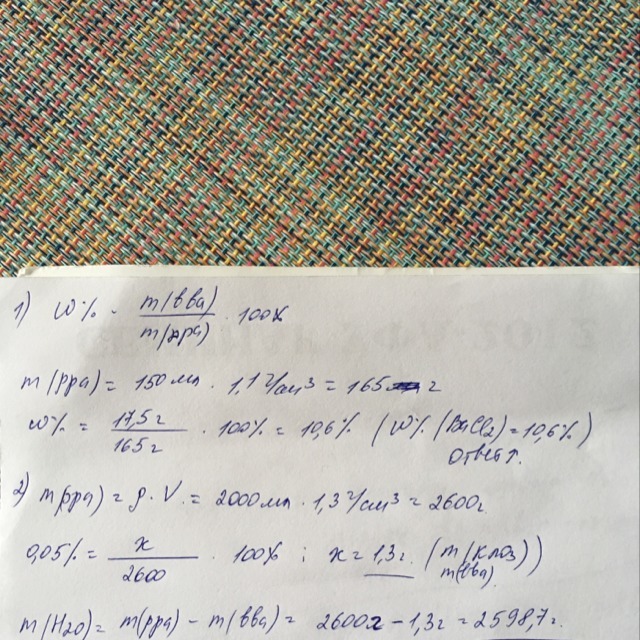 1) W% = m(вва) / m(рра) · 100%
m(рра) = 150 мл · 1,1 г/см³ = 165 г
W% = 17,5 г / 165 г · 100% = 10,6% (W% (BaCl₂) = 10,6%)
Ответ.
2) m(рра) = ρ · V = 2000 мл · 1,3 г/см³ = 2600 г
0,05% = x / 2600 · 100% ; x = 1,3 г. (m(KNO₃))
m(вва)
m(H₂O) = m(рра) - m(вва) = 2600 г - 1,3 г = 2598,7 г.